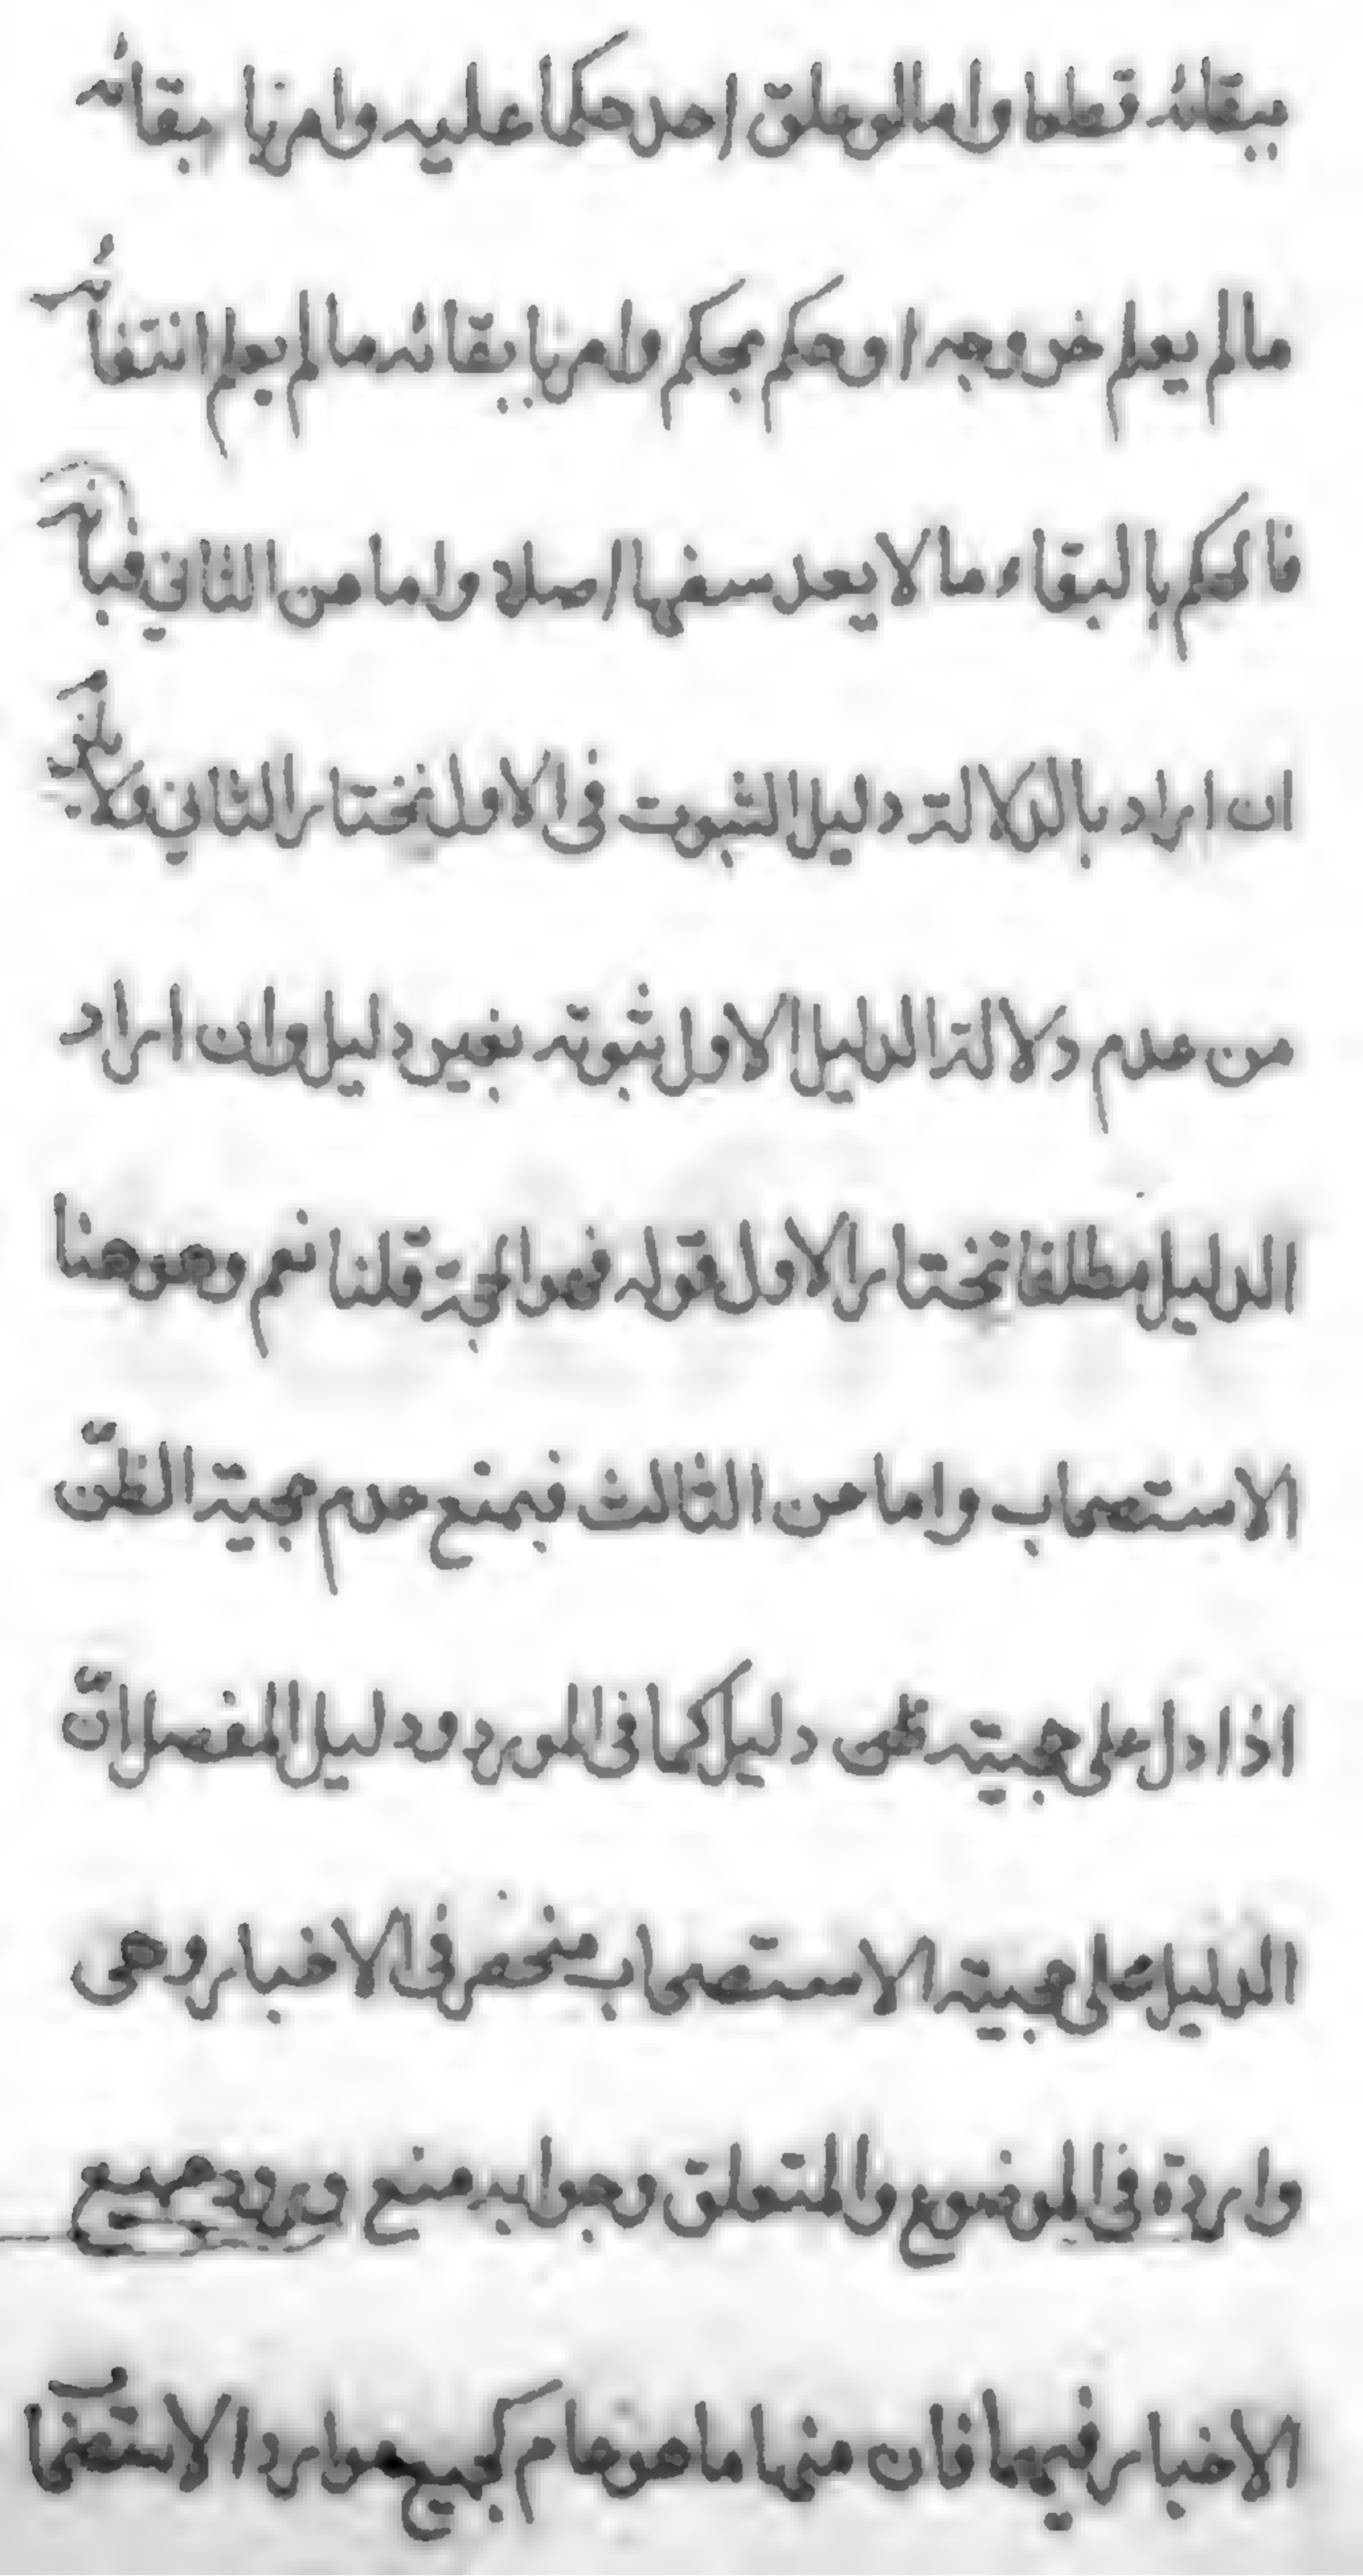 ببقائه قطعا واما لو علق احد حكما عليه وامرنا ببقائه
ما لم يعلم خروجه او حكم بحكم وامرنا ببقائه ما لم يعلم انتفائه
فالحكم بالبقاء مما لا يعد سفها اصلا واما من الثاني فبانه
ان اراد بالدلالة دليل الثبوت في الاول نختار الثاني فلا يلزم
من عدم دلالة الدليل الاول ثبوته بغير دليل وان اراد
الدليل مطلقا نختار الاول قوله فهو الحجة قلنا نعم وهو هنا
الاستصحاب واما من الثالث فبمنع عدم حجية الظن
اذا دل على حجيته ظنى دليل كما في المورد ودليل المفصل ان
الدليل على حجية الاستصحاب منحصر في الاخبار وهى
واردة في الموضوع والمتعلق وجوابه منع ورود جميع
الاخبار فيهما فان منها ما هو عام كجميع موارد الاستصحاب